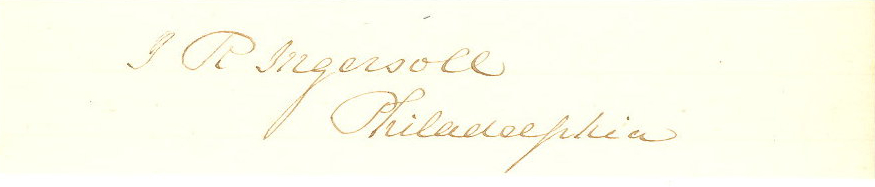 J R Ingersoll
Philadelphia